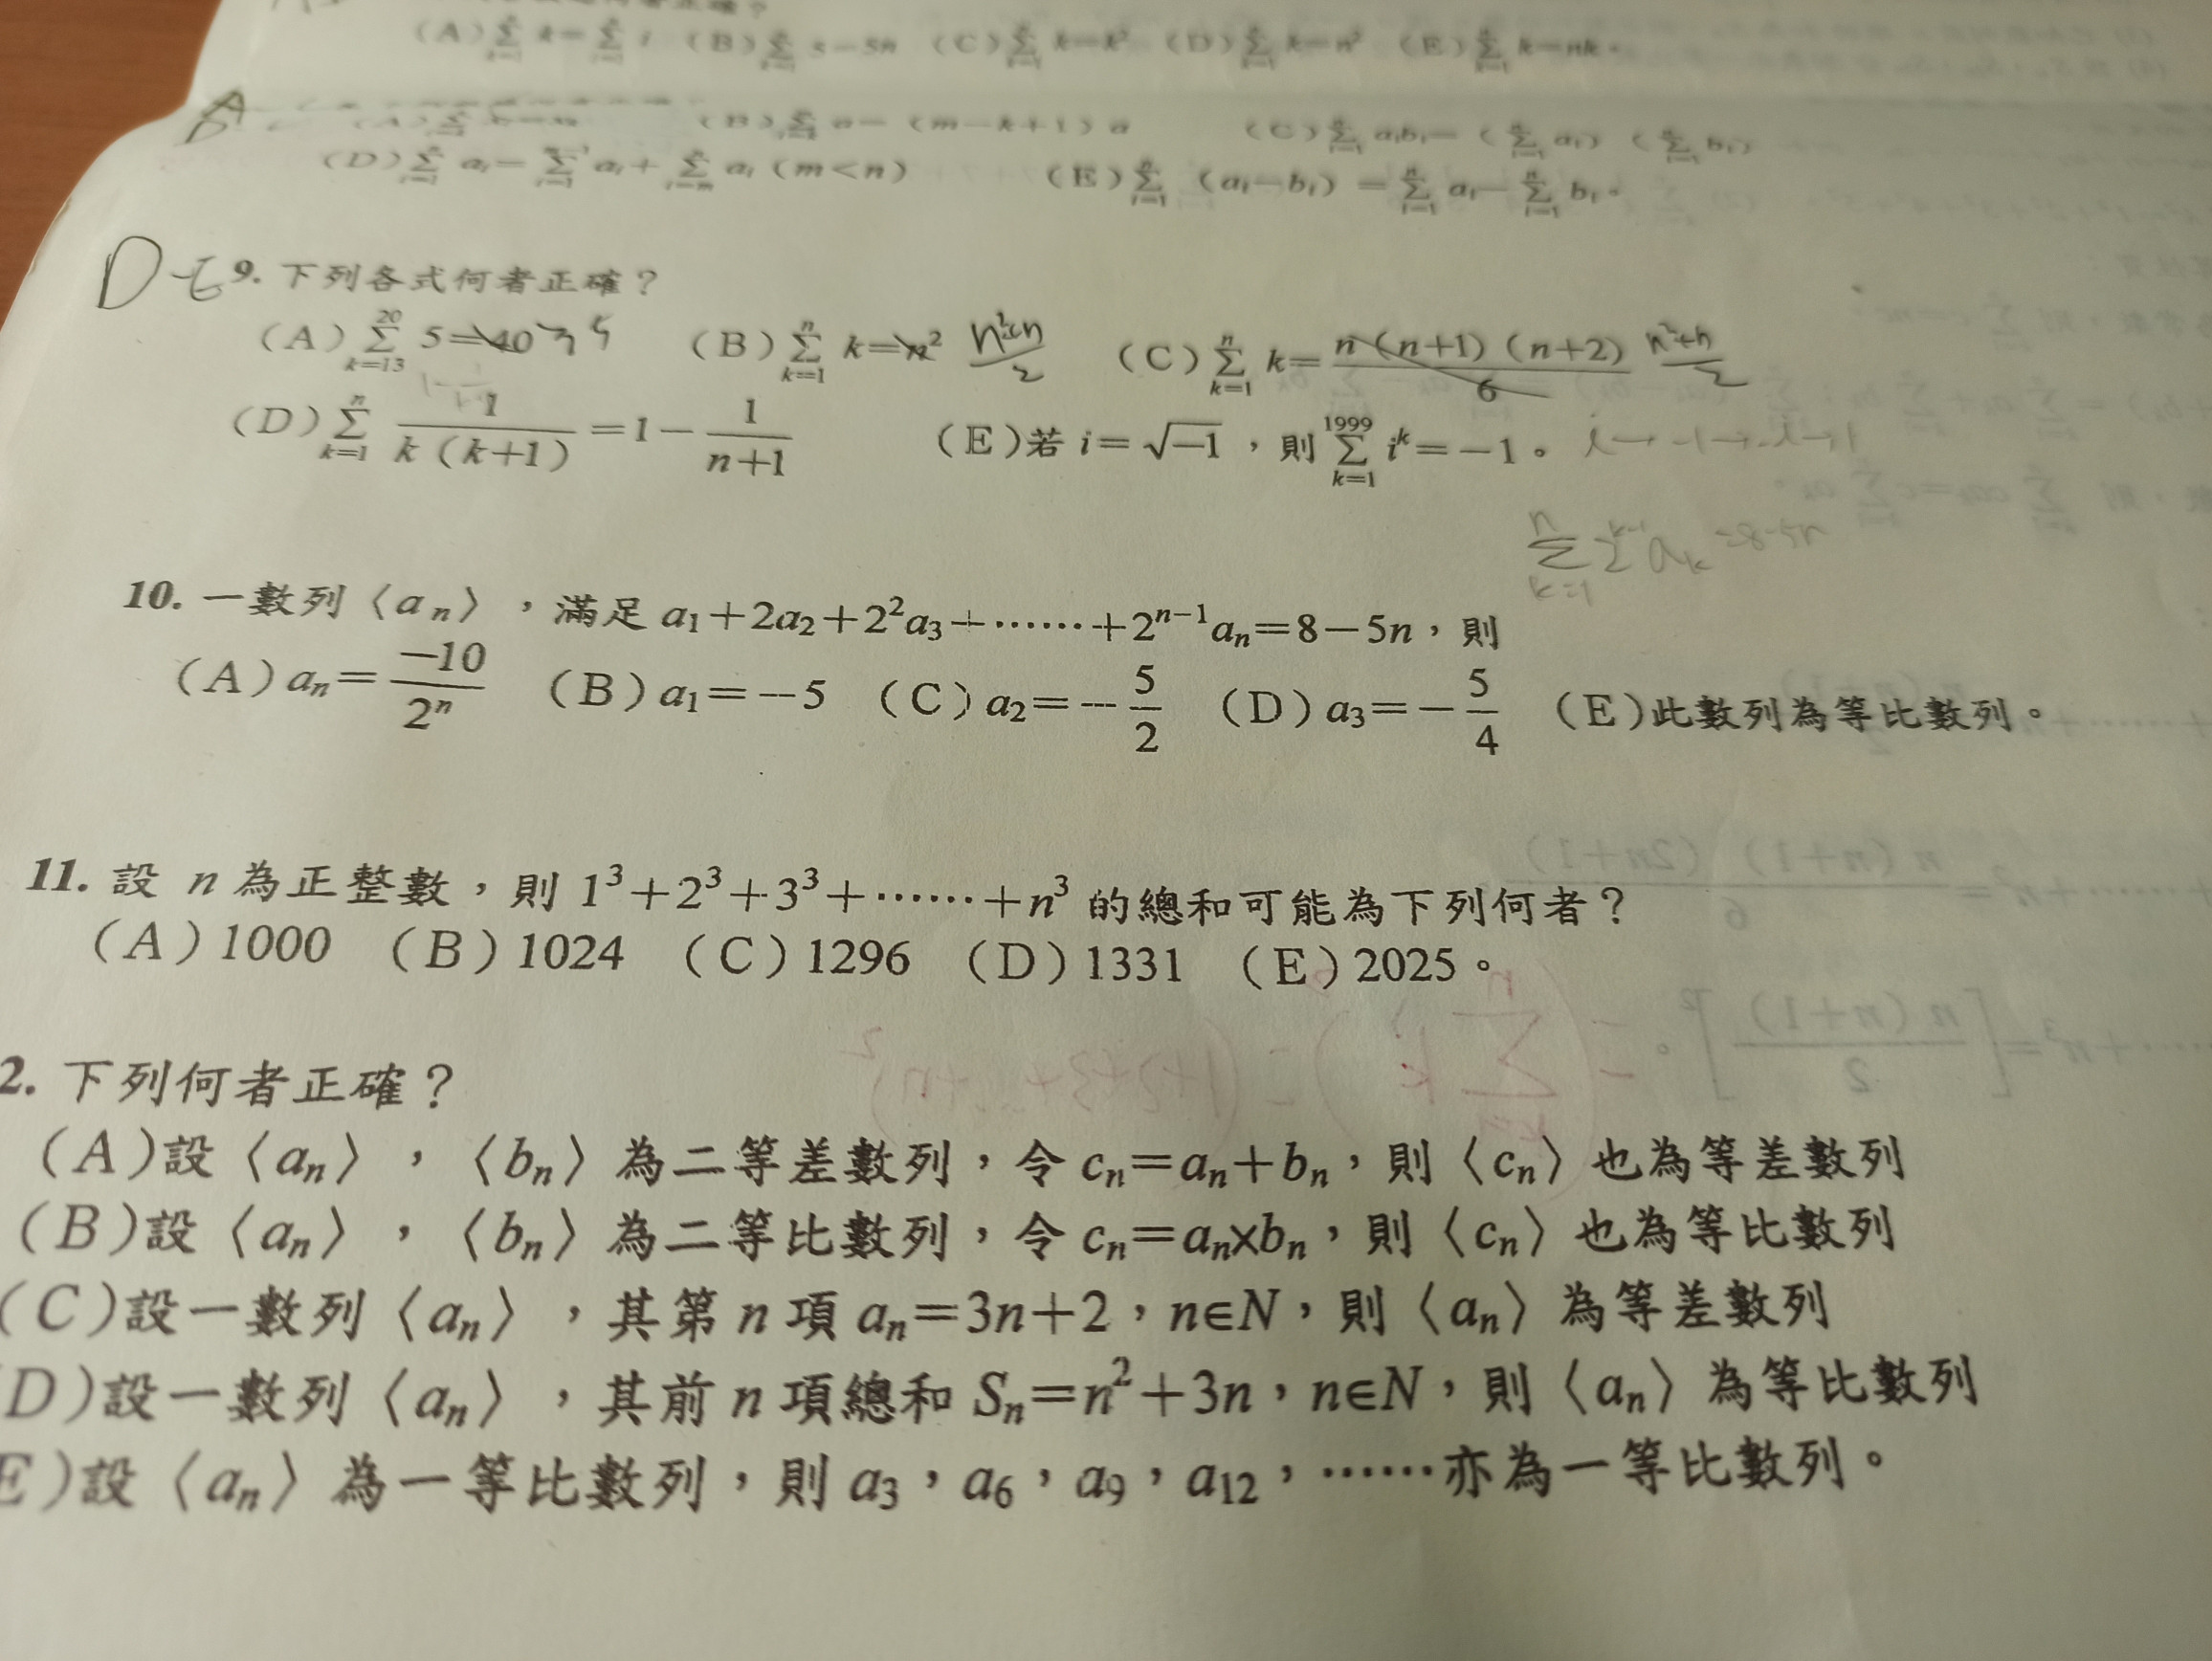 (A) Σ k= Σ i (B) Σ 5=5n (C) Σ k=k² (D) Σ k=n² (E) Σ k=nk。
(B) Σ a= (m-k+1) a (C) Σ aᵢbᵢ= (Σ aᵢ) (Σ bᵢ)
(D) Σ aᵢ= Σ aᵢ+ Σ aᵢ (m<n) (E) Σ_{i=1}^{n} (aᵢ-bᵢ) = Σ_{i=1}^{n} aᵢ- Σ_{i=1}^{n} bᵢ。
D E 9. 下列各式何者正確?
(A) Σ_{k=13}^{20} 5=40 (B) Σ_{k=1}^{n} k=n² (n²+n)/2 (C) Σ_{k=1}^{n} k= n(n+1)(n+2)/6 (n²+n)/2
(D) Σ_{k=1}^{n} 1/(k(k+1)) =1- 1/(n+1) (E)若 i=√-1,則 Σ_{k=1}^{1999} iᵏ=-1。
10. 一數列〈aₙ〉,滿足 a₁+2a₂+2²a₃+……+2ⁿ⁻¹aₙ=8-5n,則
(A) aₙ= -10/2ⁿ (B) a₁=-5 (C) a₂=- 5/2 (D) a₃=- 5/4 (E)此數列為等比數列。
11. 設 n 為正整數,則 1³+2³+3³+……+n³ 的總和可能為下列何者?
(A) 1000 (B) 1024 (C) 1296 (D) 1331 (E) 2025。
2. 下列何者正確?
(A)設〈aₙ〉,〈bₙ〉為二等差數列,令 cₙ=aₙ+bₙ,則〈cₙ〉也為等差數列
(B)設〈aₙ〉,〈bₙ〉為二等比數列,令 cₙ=aₙ×bₙ,則〈cₙ〉也為等比數列
(C)設一數列〈aₙ〉,其第 n 項 aₙ=3n+2,n∈N,則〈aₙ〉為等差數列
D)設一數列〈aₙ〉,其前 n 項總和 Sₙ=n²+3n,n∈N,則〈aₙ〉為等比數列
E)設〈aₙ〉為一等比數列,則 a₃,a₆,a₉,a₁₂,……亦為一等比數列。